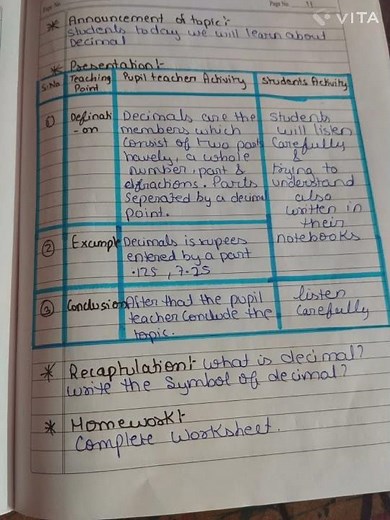 Page No. 11
VITA
* Announcement of topic:-
Students today we will learn about
Decimal
* Presentation:-
S.No Teaching Point Pupil teacher Activity Students Activity
① Definati-on
Decimals are the
members which
consist of two part
havely, a whole
number, part &
dfractions. Parts
Seperated by a decimal
Point.
Students
will listen
Carefully
&
trying to
understand
also
written in
their
notebooks
② Example
Decimals is rupees
entered by a part
.125, 7.25
③ Conclusion
After that the pupil
teacher Conclude the
topic.
listen
Carefully
* Recaptulation:- What is decimal?
Write the Symbol of decimal?
* Homework:-
Complete Worksheet.